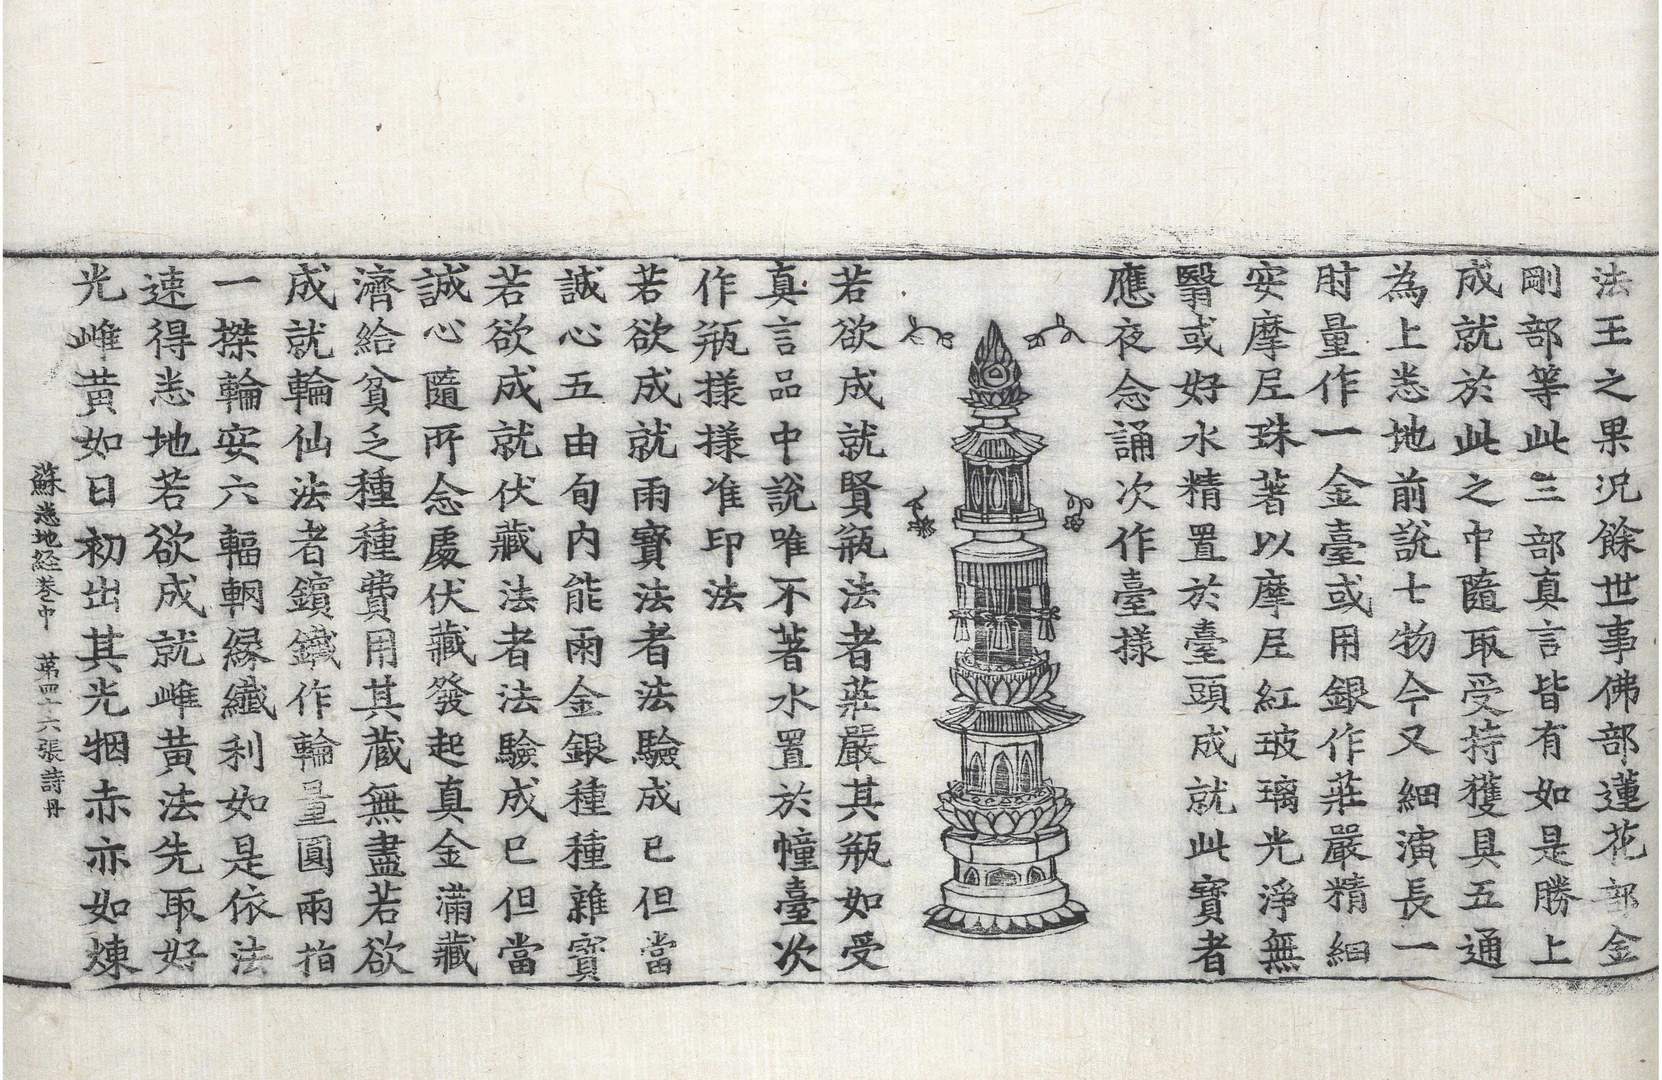 法王之果況餘世事佛部蓮花部金
剛部等此三部真言皆有如是勝上
成就於此之中隨取受持獲具五通
為上悉地前說七物今又細演長一
肘量作一金臺或用銀作莊嚴精細
安摩尼珠著以摩尼紅玻璃光淨無
翳或好水精置於臺頭成就此寶者
應夜念誦次作臺樣
若欲成就賢瓶法者莊嚴其瓶如受
真言品中說唯不著水置於幢臺次
作瓶樣樣准印法
若欲成就雨寶法者法驗成已但當
誠心五由旬內能雨金銀種種雜寶
若欲成就伏藏法者法驗成已但當
誠心隨所念處伏藏發起真金滿藏
濟給貧乏種種費用其藏無盡若欲
成就輪仙法者鑌鐵作輪量圓兩指
一搩輪安六輻輞緣纖利如是依法
速得悉地若欲成就雌黃法先取好
光雌黃如日初出其光㹀赤亦如煉
蘇悉地經卷中　第四十六張詩丹